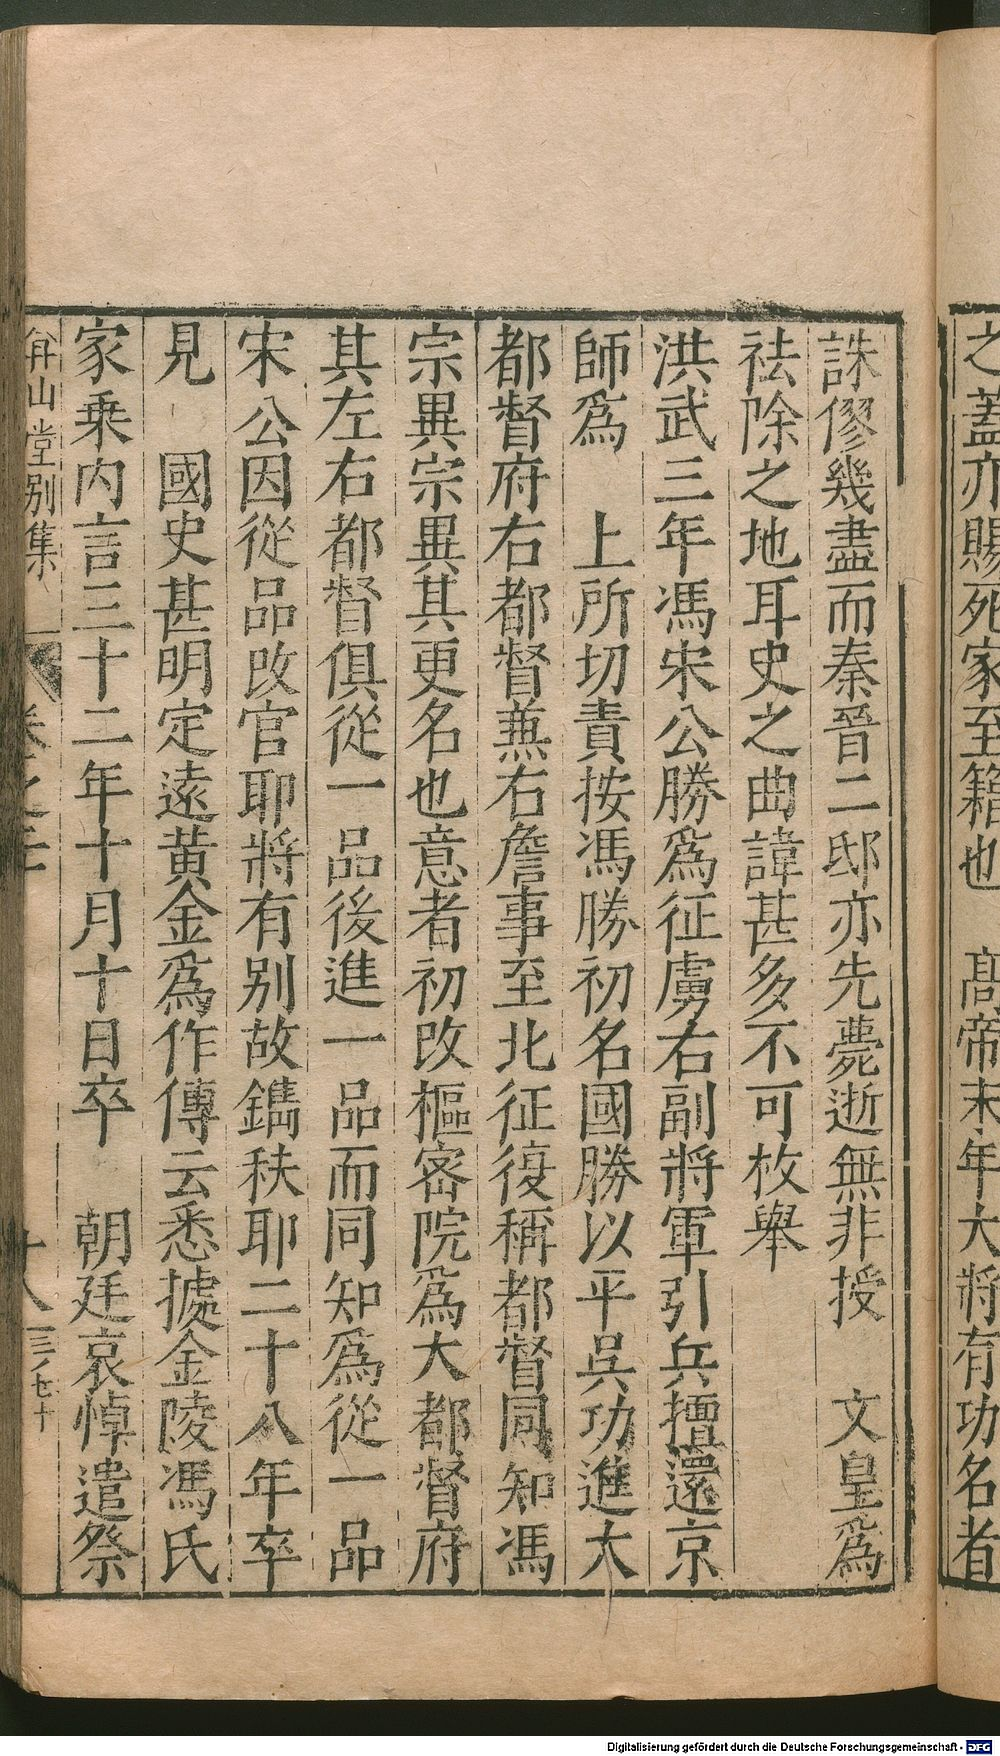 之蓋亦賜死家至籍也　高帝末年大將有功名者
誅僇幾盡而秦晉二邸亦先薨逝無非授　文皇爲
祛除之地耳史之曲諱甚多不可枚舉
洪武三年馮宋公勝爲征虜右副將軍引兵擅還京
師爲　上所切責按馮勝初名國勝以平吳功進大
都督府右都督兼右詹事至北征復稱都督同知馮
宗異宗異其更名也意者初改樞密院爲大都督府
其左右都督俱從一品後進一品而同知爲從一品
宋公因從品改官耶將有別故鐫秩耶二十八年卒
見　國史甚明定遠黃金爲作傳云悉據金陵馮氏
家乗內言三十二年十月十日卒　朝廷哀悼遣祭
弇山堂别集　卷之二十　十八
Digitalisierung gefördert durch die Deutsche Forschungsgemeinschaft - DFG